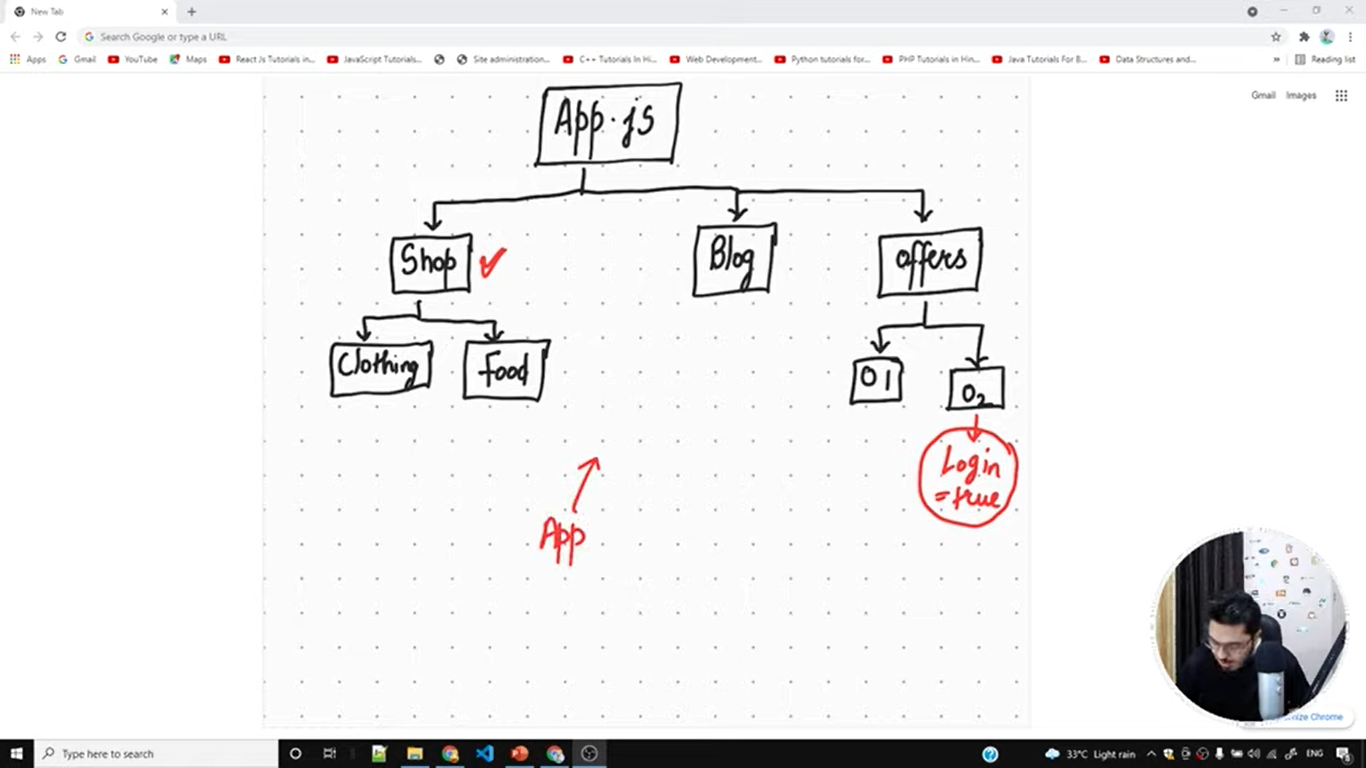 New Tab
Search Google or type a URL
Apps Gmail YouTube Maps React Js Tutorials in... JavaScript Tutorials... Site administration... C++ Tutorials In Hi... Web Development... Python tutorials for... PHP Tutorials in Hin... Java Tutorials For B... Data Structures and... » Reading list
Gmail Images
App.js
Shop Blog offers
Clothing Food O1 O2
Login
=true
App
Customize Chrome
Type here to search
33°C Light rain ENG